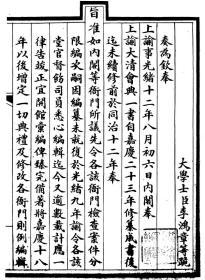 大學士臣李鴻章等跪
奏爲欽奉
上諭事光緒十二年八月初六日内閣奉
上諭大清會典一書自嘉慶二十三年修纂成書後
迄未續修前於同治十二年奏
旨准如内閣等衙門所議先令各該衙門檢查案件分
限編次嗣因編纂未就復於光緒九年諭令各該
堂官督飭司員悉心編輯迄今又逾數載計應
律告竣正宜開館彙編俾臻完備著將嘉慶十八
年以後增定一切典禮及修改各衙門則例編輯